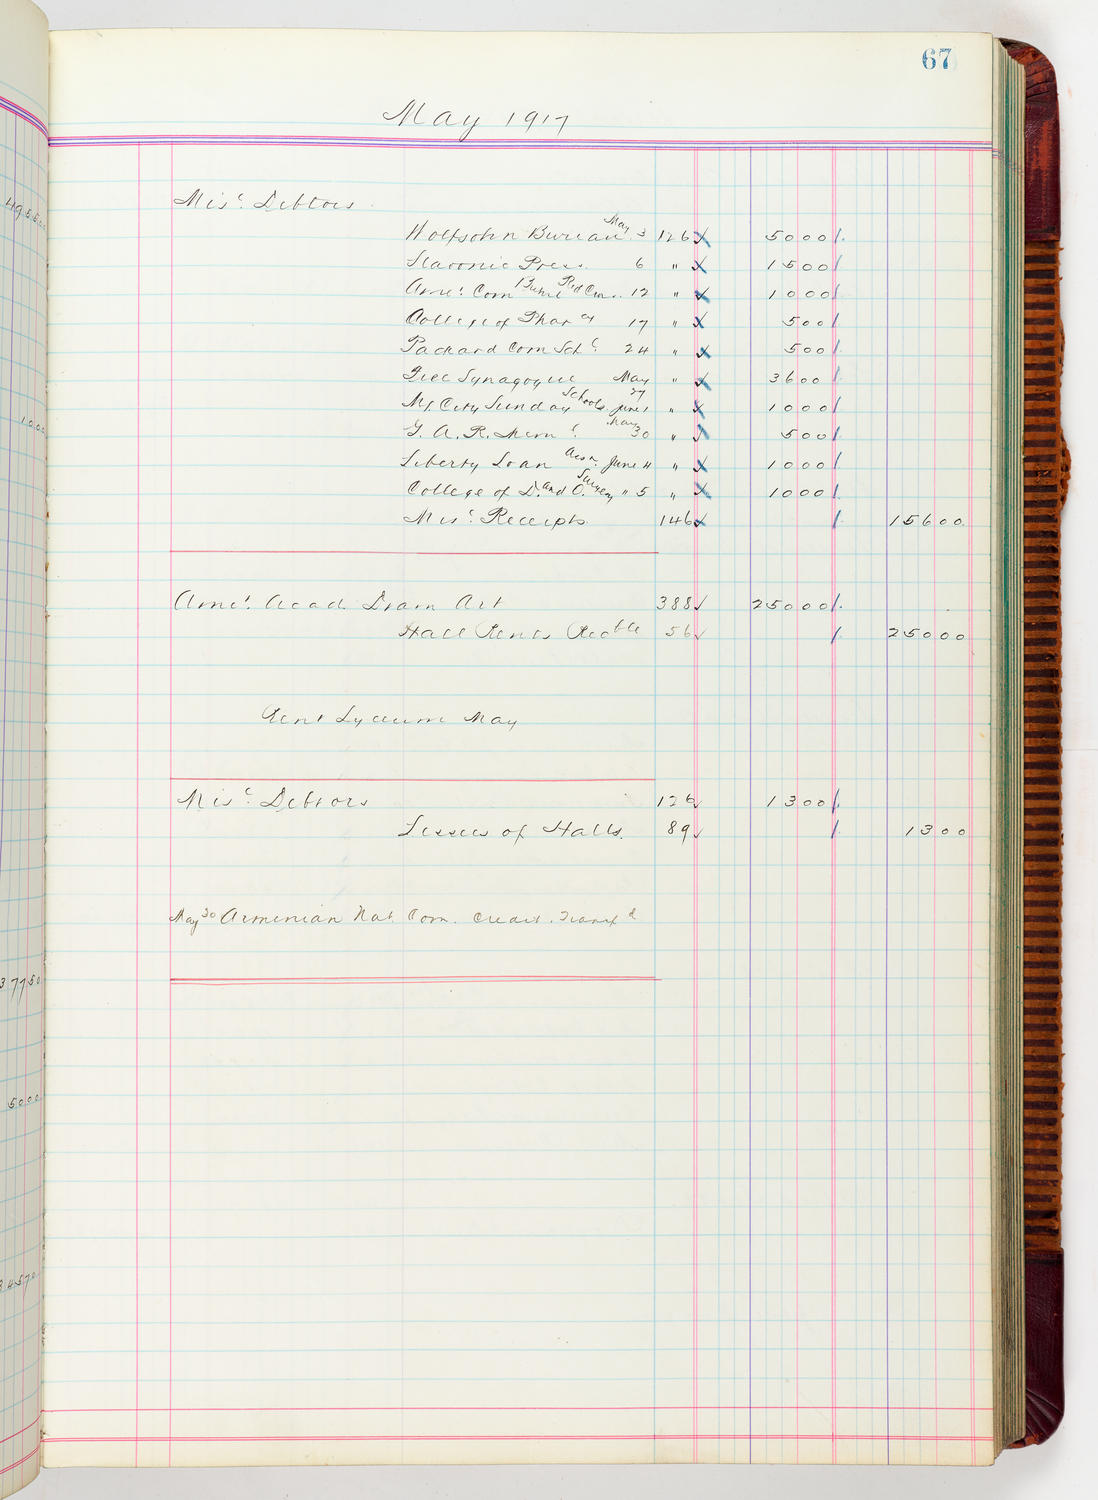 67
May 1917
Misc. Debtors
Wolfsohn Bureau May 3 126 5000
Slavonic Press 6 " 1500
Amer. Com Red Cross 12 " 1000
College of Pharcy 17 " 500
Packard Com Schl. 24 " 500
Free Synagogue May 27 " 3600
N.Y. City Sunday Schools June 1 " 1000
G. A. R. Meml. May 30 " 500
Liberty Loan Assn. June 4 " 1000
College of D. and O. Surgery " 5 " 1000
Misc. Receipts 146 15600
Amer. Acad Dram Art 388 25000
Hall Rents Recble 56 25000
Rent Lyceum May
Misc. Debtors 126 1300
Lessees of Halls. 89 1300
May 30 Armenian Nat. Com. Credit. Transfd
495500
1000
37750
5000
34570